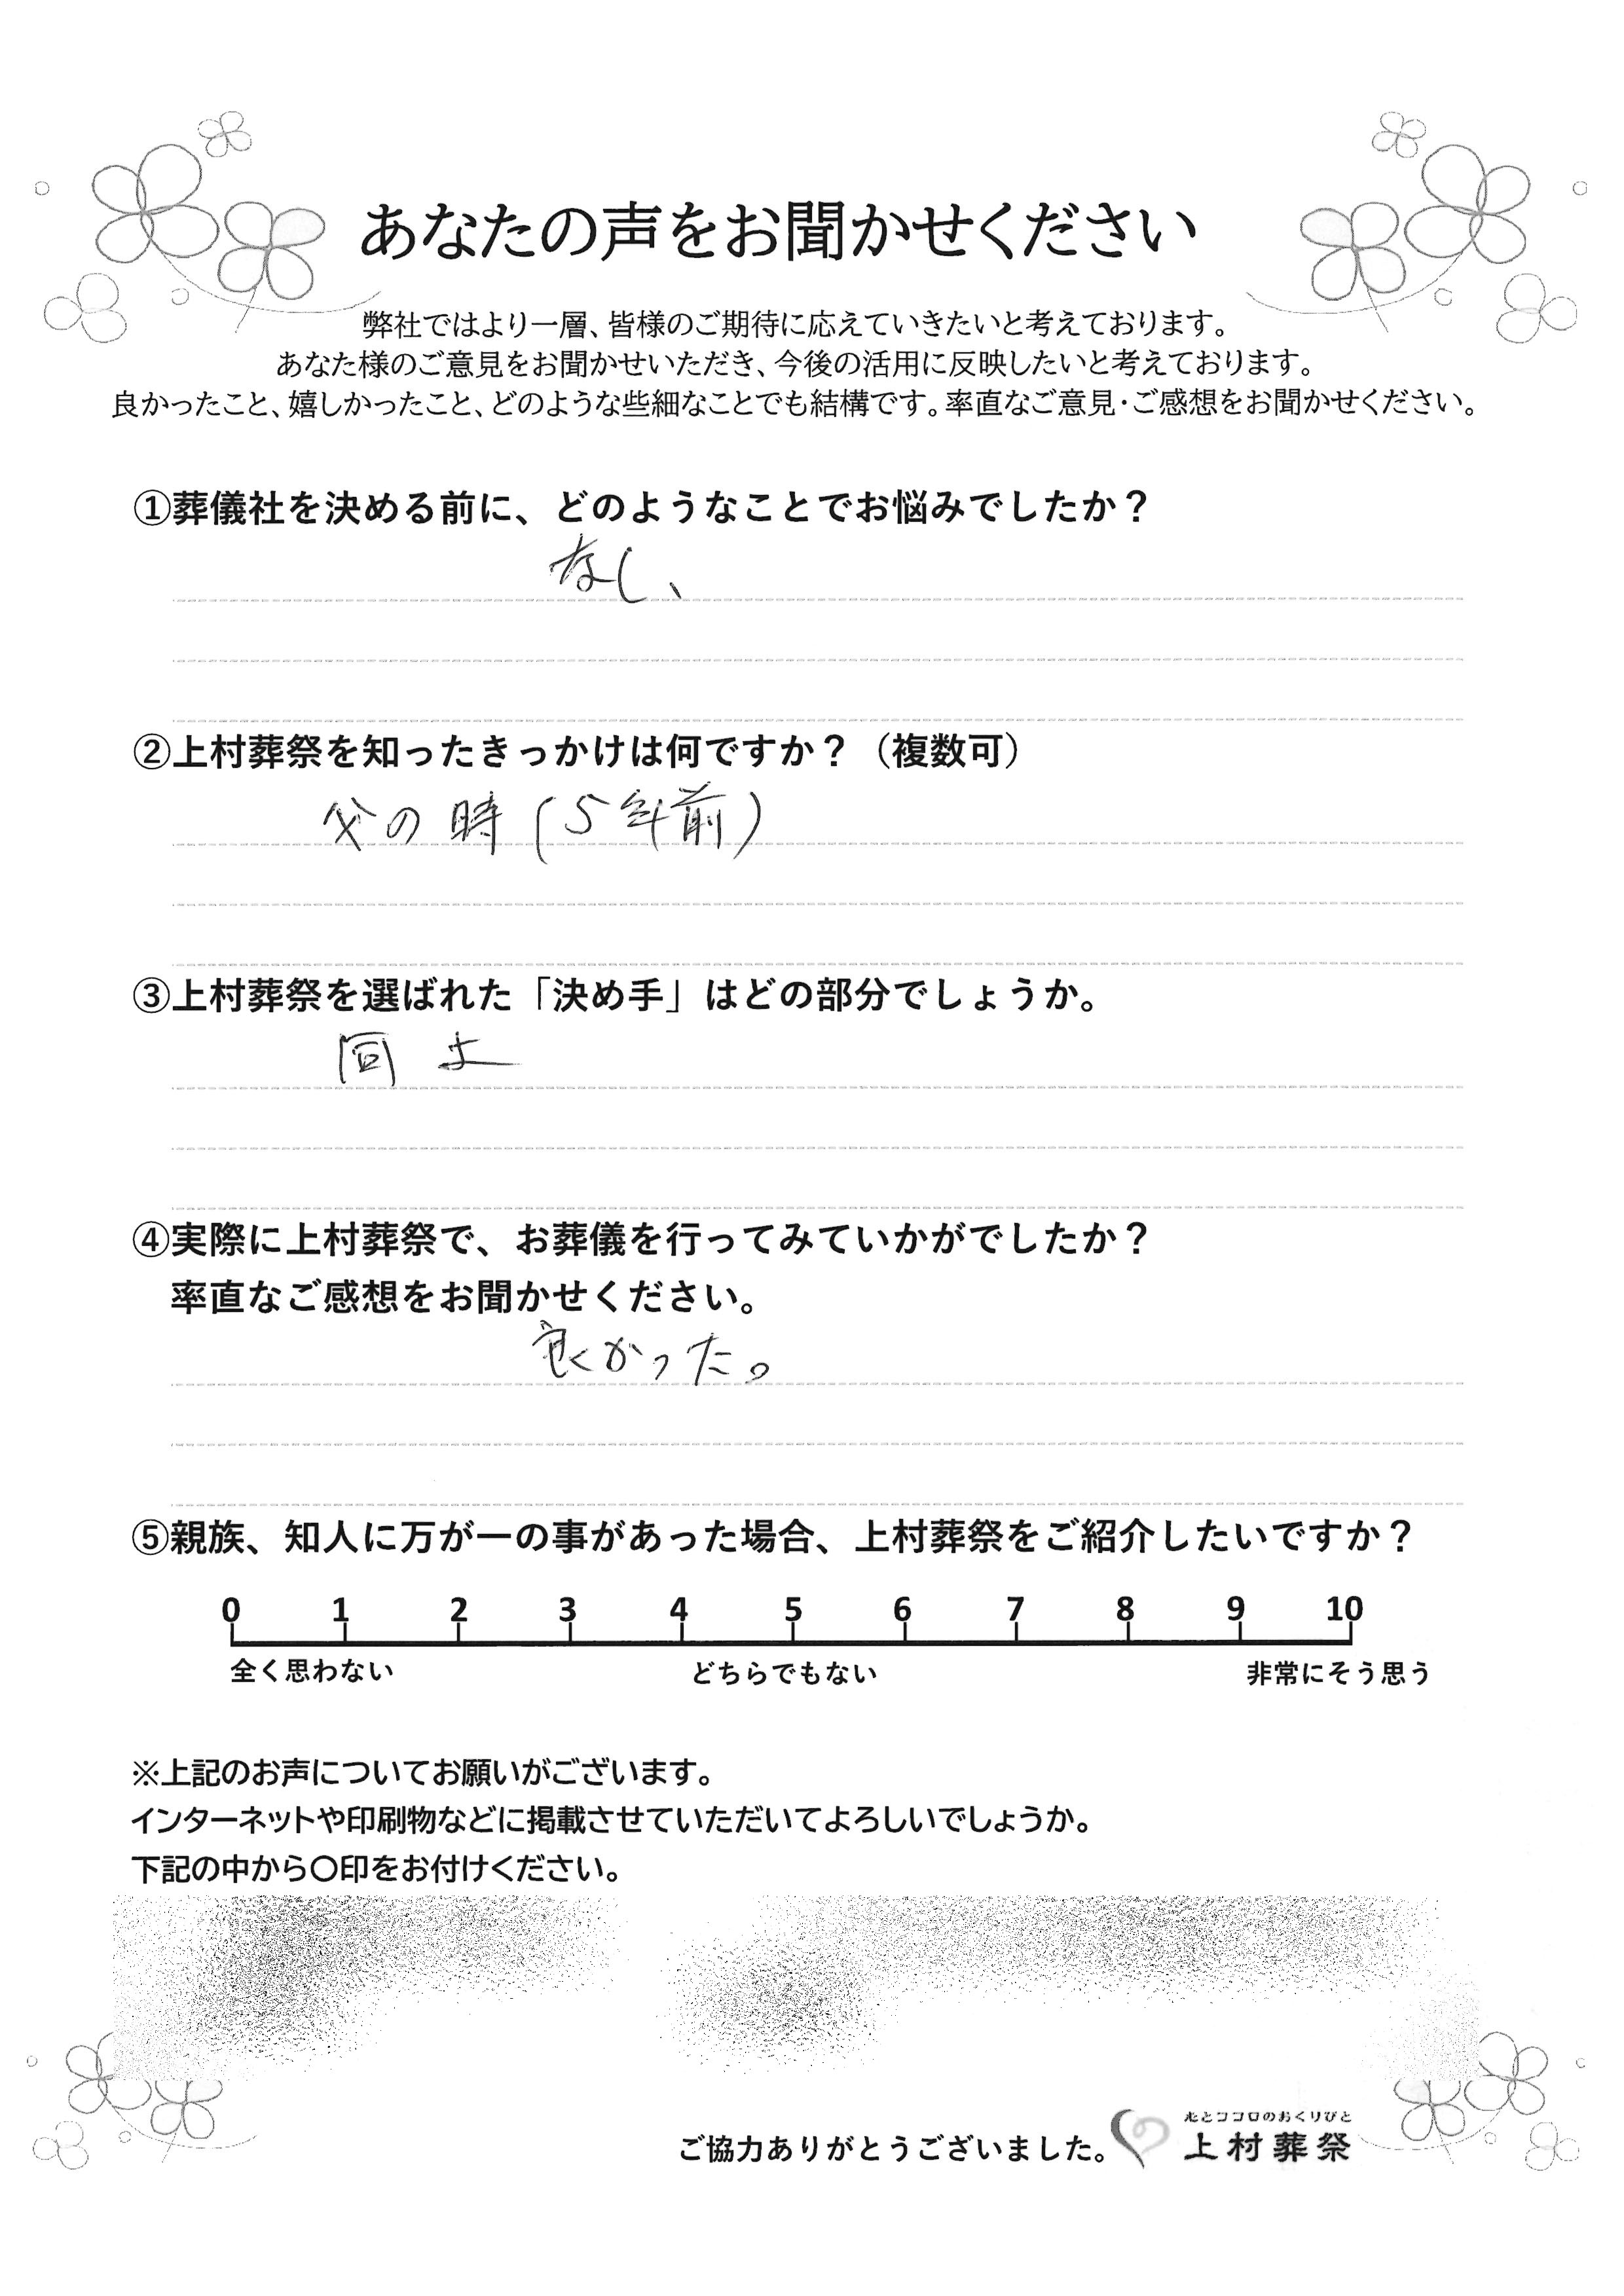 あなたの声をお聞かせください
弊社ではより一層、皆様のご期待に応えていきたいと考えております。
あなた様のご意見をお聞かせいただき、今後の活用に反映したいと考えております。
良かったこと、嬉しかったこと、どのような些細なことでも結構です。率直なご意見・ご感想をお聞かせください。
①葬儀社を決める前に、どのようなことでお悩みでしたか？
なし、
②上村葬祭を知ったきっかけは何ですか？（複数可）
父の時(5年前)
③上村葬祭を選ばれた「決め手」はどの部分でしょうか。
同上
④実際に上村葬祭で、お葬儀を行ってみていかがでしたか？
率直なご感想をお聞かせください。
良かった。
⑤親族、知人に万が一の事があった場合、上村葬祭をご紹介したいですか？
0 1 2 3 4 5 6 7 8 9 10
全く思わない どちらでもない 非常にそう思う
※上記のお声についてお願いがございます。
インターネットや印刷物などに掲載させていただいてよろしいでしょうか。
下記の中から〇印をお付けください。
ご協力ありがとうございました。
心とココロのおくりびと
上村葬祭